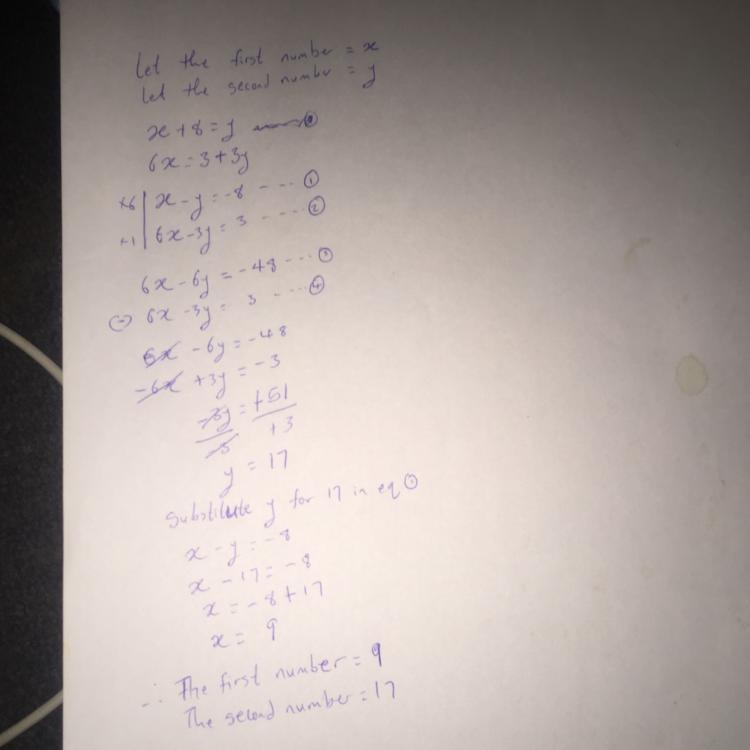 Let the first number = x
Let the second number = y
x + 8 = y
6x = 3 + 3y
×6 | x - y = -8 --- ①
×1 | 6x - 3y = 3 ---- ②
6x - 6y = -48 --- ③
(-) 6x - 3y = 3 --- ④
6x - 6y = -48
-6x + 3y = -3
-3y = +51
-3 +3
y = 17
Substitute y for 17 in eq ①
x - y = -8
x - 17 = -8
x = -8 + 17
x = 9
∴ The first number = 9
The second number = 17